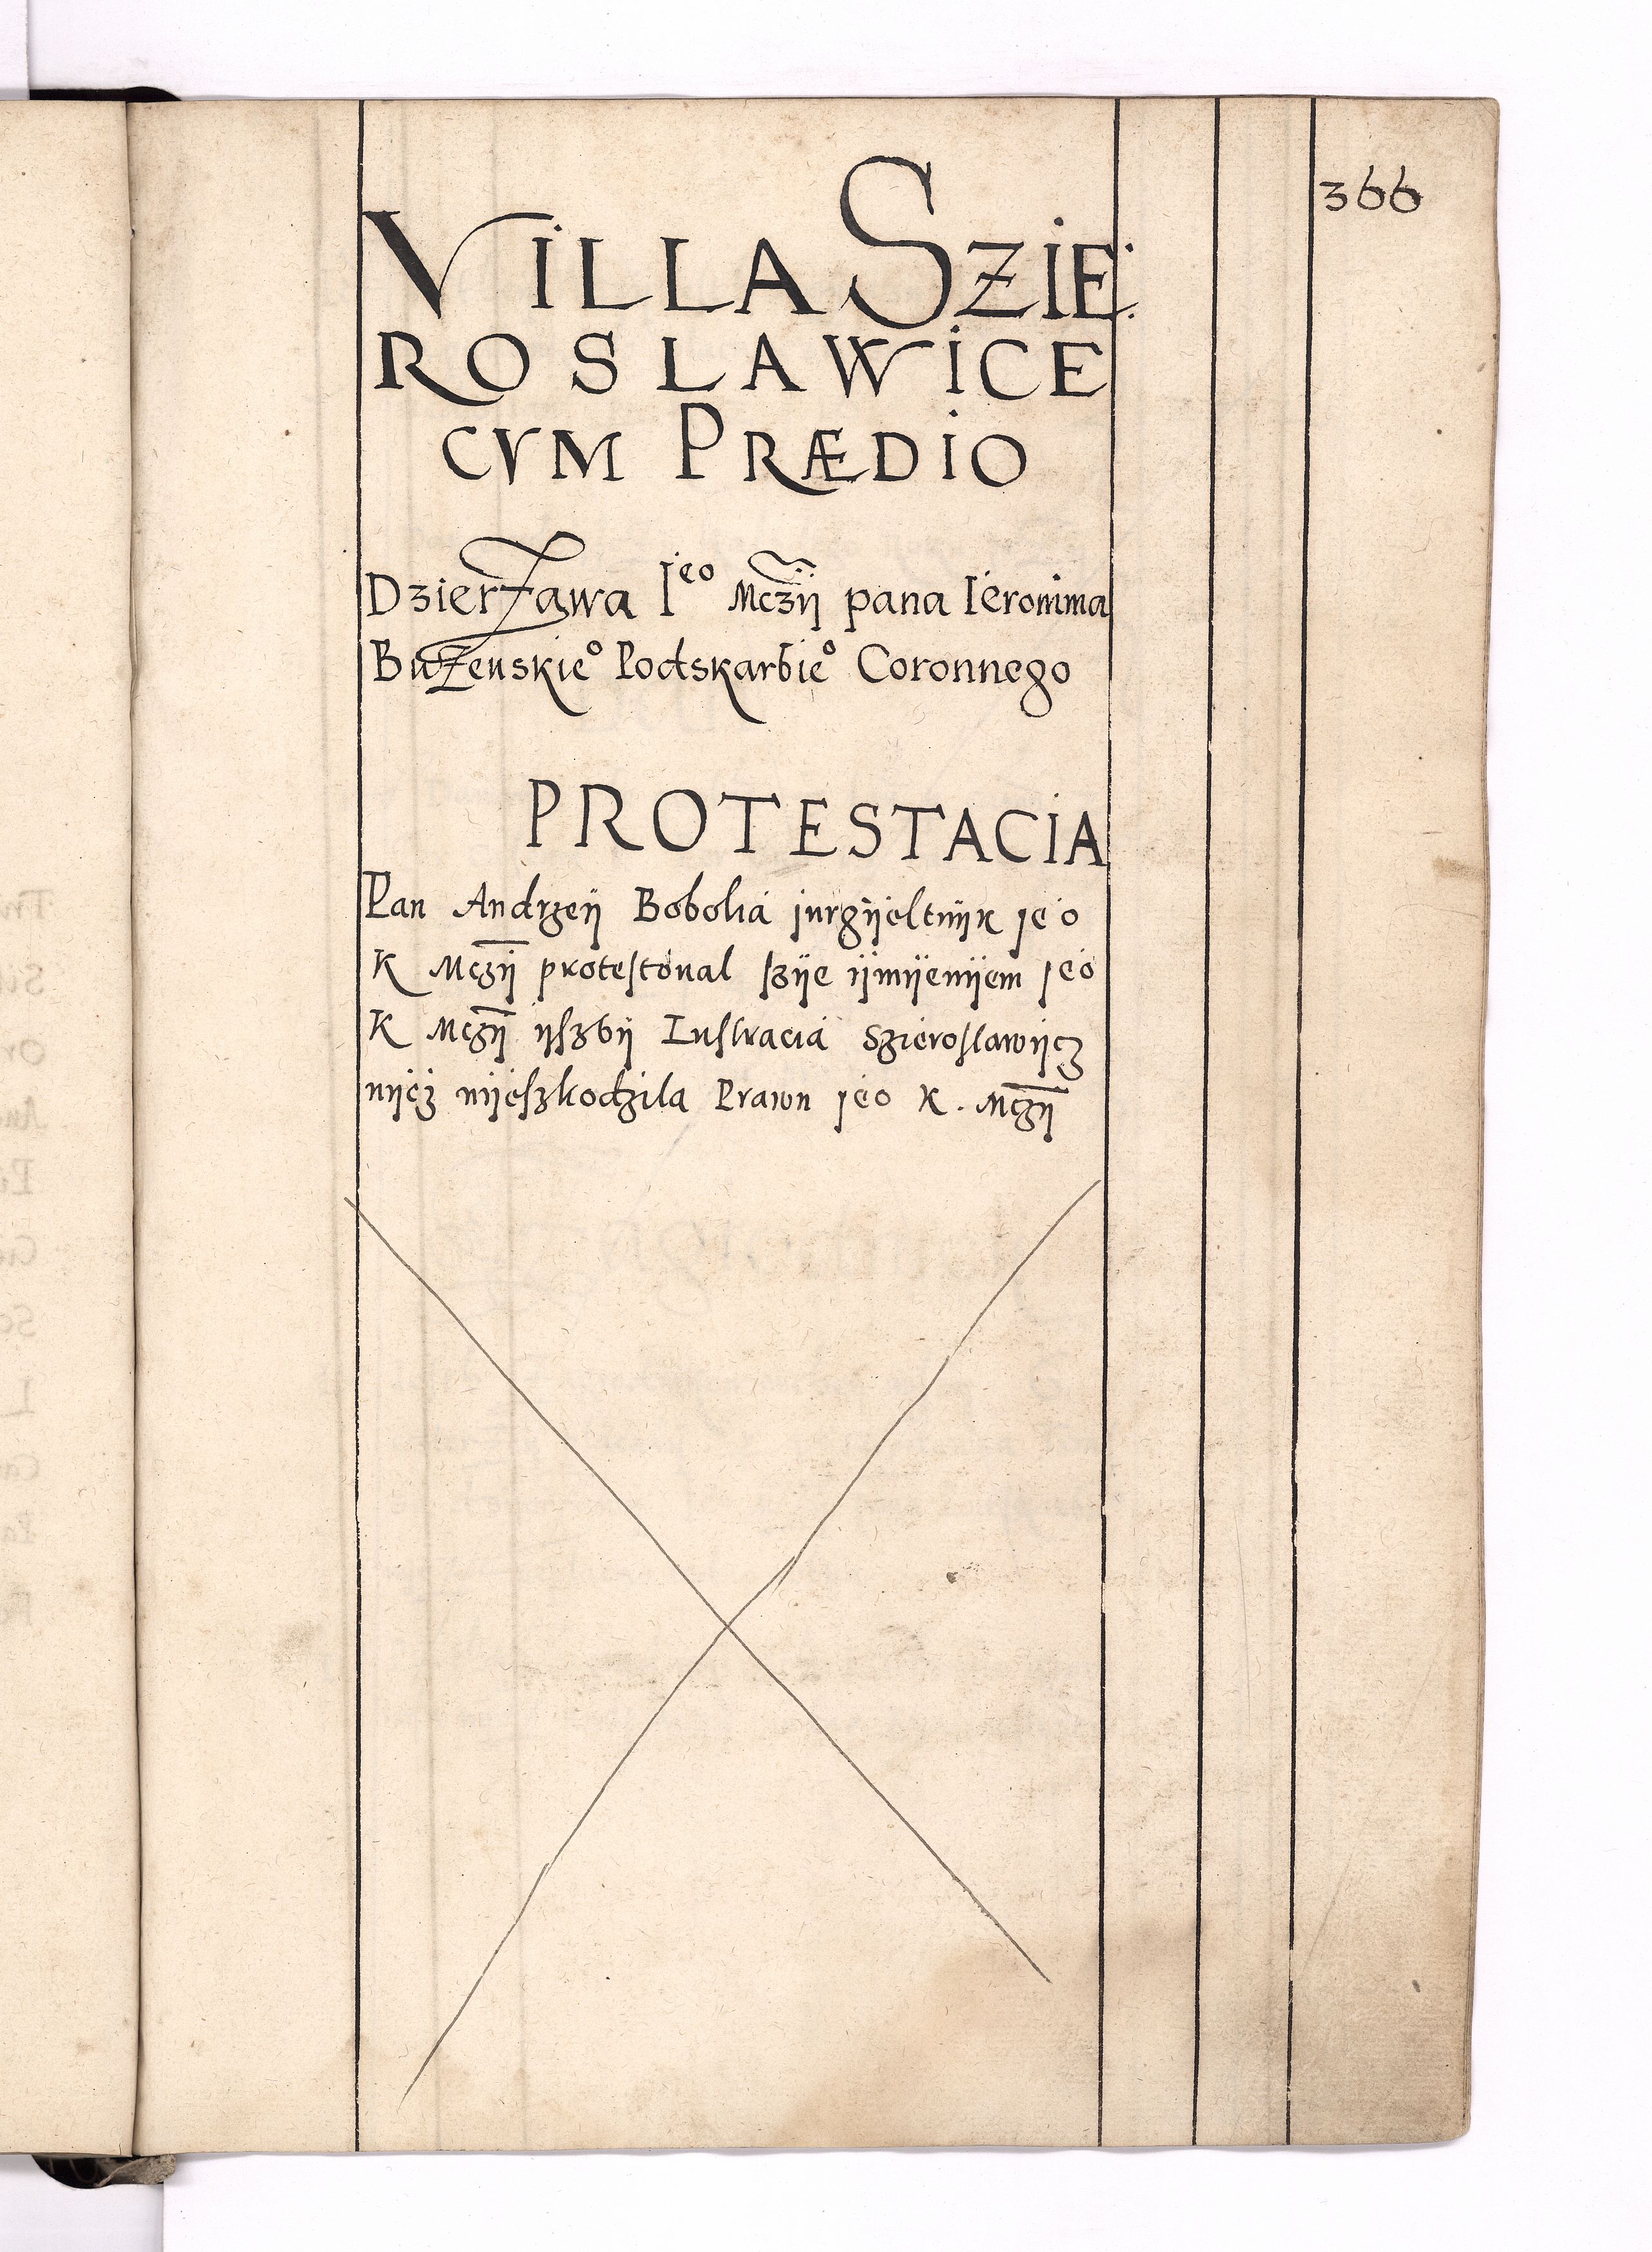 366
VILLA SZIE:
ROSLAWICE
CVM PRÆDIO
Dzierżawa Ieo Mczÿ pana Ieronima
Bużenskieo Podskarbieo Coronnego
PROTESTACIA
Pan Andrzeÿ Bobolia jurgÿeltnÿk jeo
K Mczÿ protestoual szÿe ÿmÿenÿem jeo
K Mczÿ ÿszbÿ Lustracia Szieroslawÿcz
nÿcz nÿeszkodzila Prawu jeo K. Mczÿ